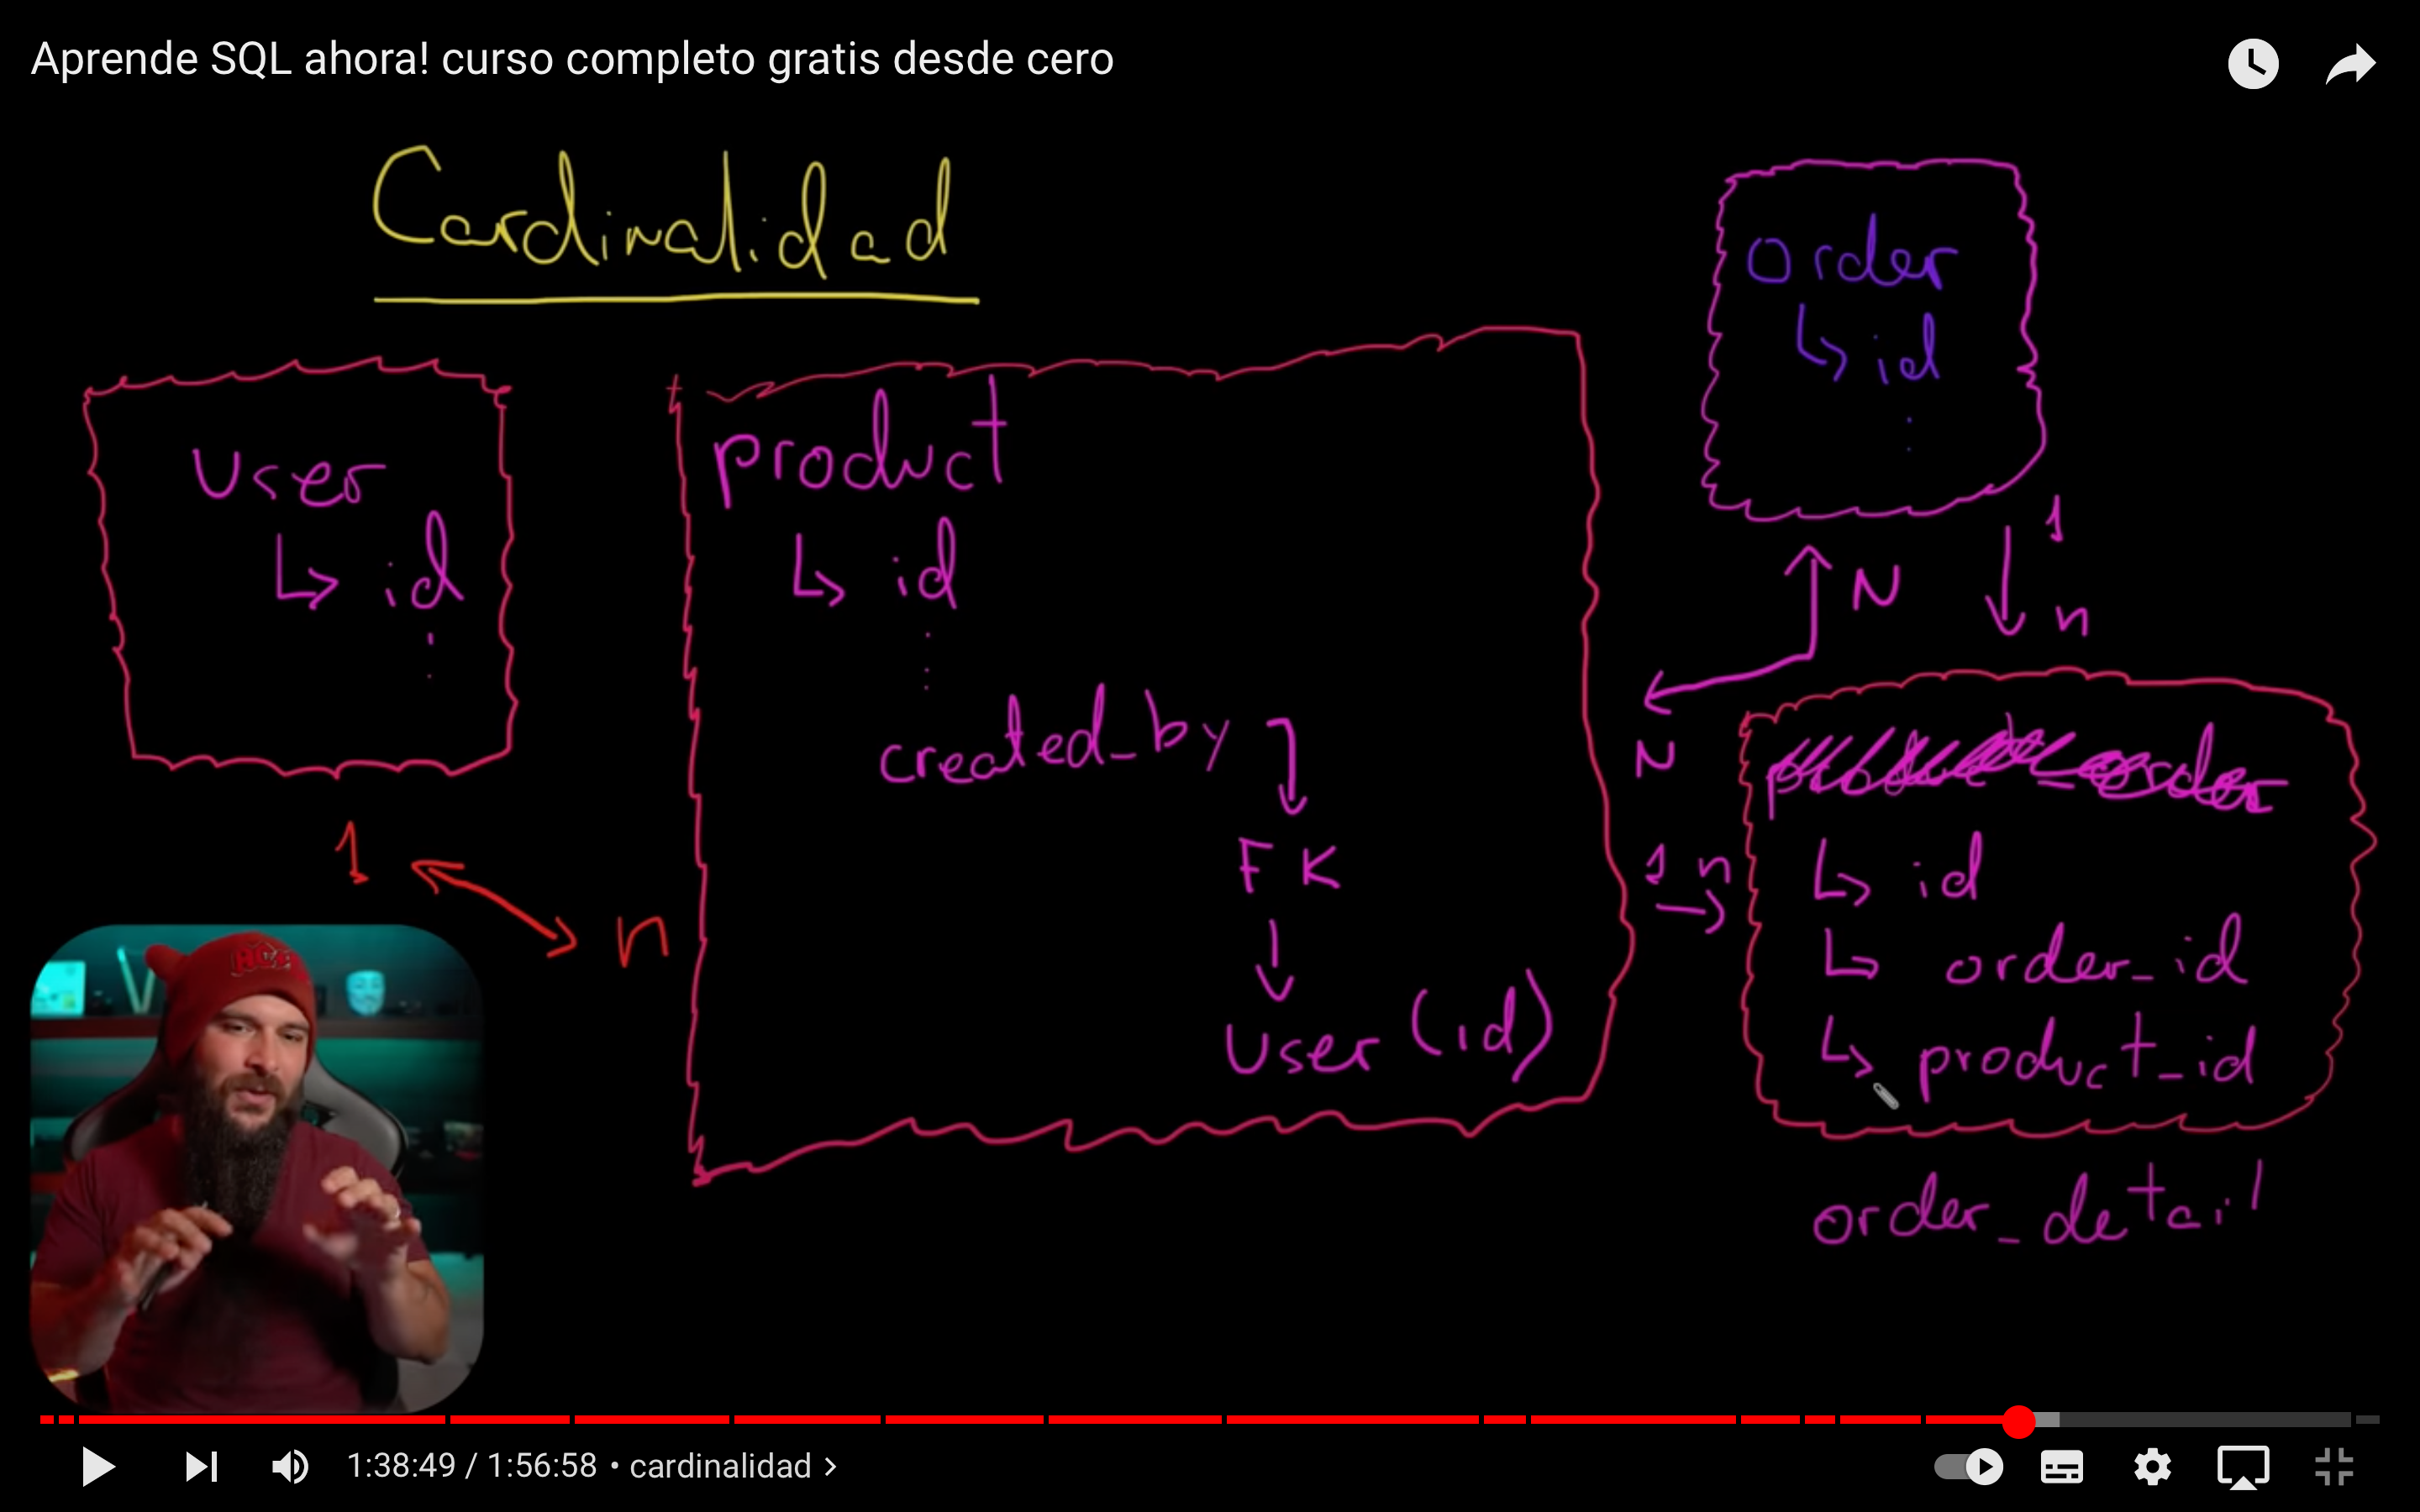 Aprende SQL ahora! curso completo gratis desde cero
Cardinalidad
user
↳ id
1
n
product
↳ id
created_by
FK
User (id)
order
↳ id
N
N
1
n
1 n
product_order
↳ id
↳ order_id
↳ product_id
order_detail
1:38:49 / 1:56:58 • cardinalidad >